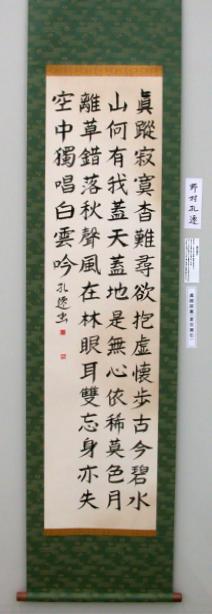 眞蹤寂寞杳難尋欲抱虚懐歩古今碧水
山何有我蓋天蓋地是無心依稀莫色月
離草錯落秋聲風在林眼耳雙忘身亦失
空中獨唱白雲吟